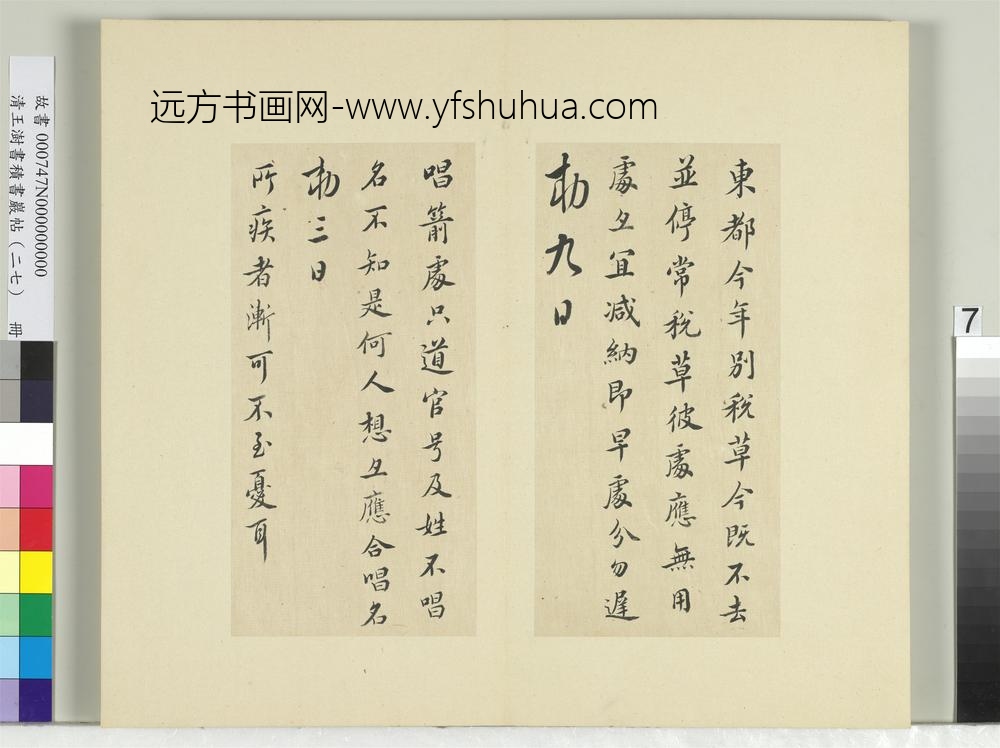 远方书画网-www.yfshuhua.com
東都今年別税草今既不去
並停常税草彼處應無用
處亦宜减納即早處分勿遲
勑九日
唱箭處只道官号及姓不唱
名不知是何人想亦應合唱名
勑三日
所疾者漸可不至憂耳
故書 000747N000000000
清王澍書積書巖帖（二七） 冊
7